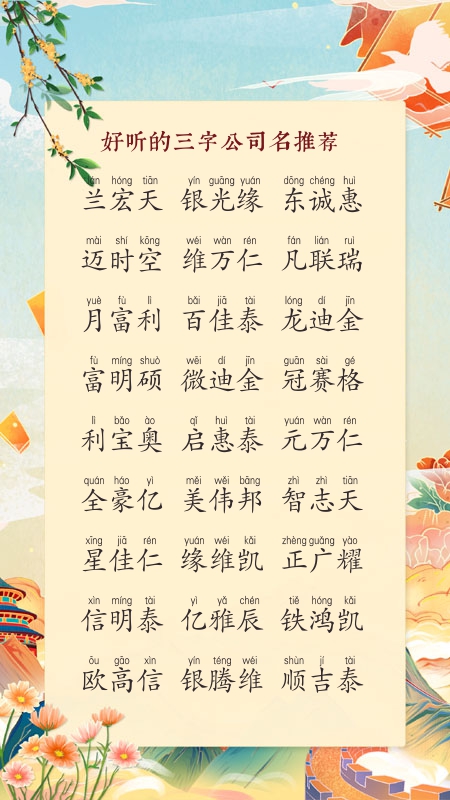 好听的三字公司名推荐
lán hóng tiān yín guāng yuán dōng chéng huì
兰宏天 银光缘 东诚惠
mài shí kōng wéi wàn rén fán lián ruì
迈时空 维万仁 凡联瑞
yuè fù lì bǎi jiā tài lóng dí jīn
月富利 百佳泰 龙迪金
fù míng shuò wēi dí jīn guān sài gé
富明硕 微迪金 冠赛格
lì bǎo ào qǐ huì tài yuán wàn rén
利宝奥 启惠泰 元万仁
quán háo yì měi wěi bāng zhì zhì tiān
全豪亿 美伟邦 智志天
xīng jiā rén yuán wéi kǎi zhèng guǎng yào
星佳仁 缘维凯 正广耀
xìn míng tài yì yǎ chén tiě hóng kǎi
信明泰 亿雅辰 铁鸿凯
ōu gāo xìn yín téng wéi shùn jí tài
欧高信 银腾维 顺吉泰